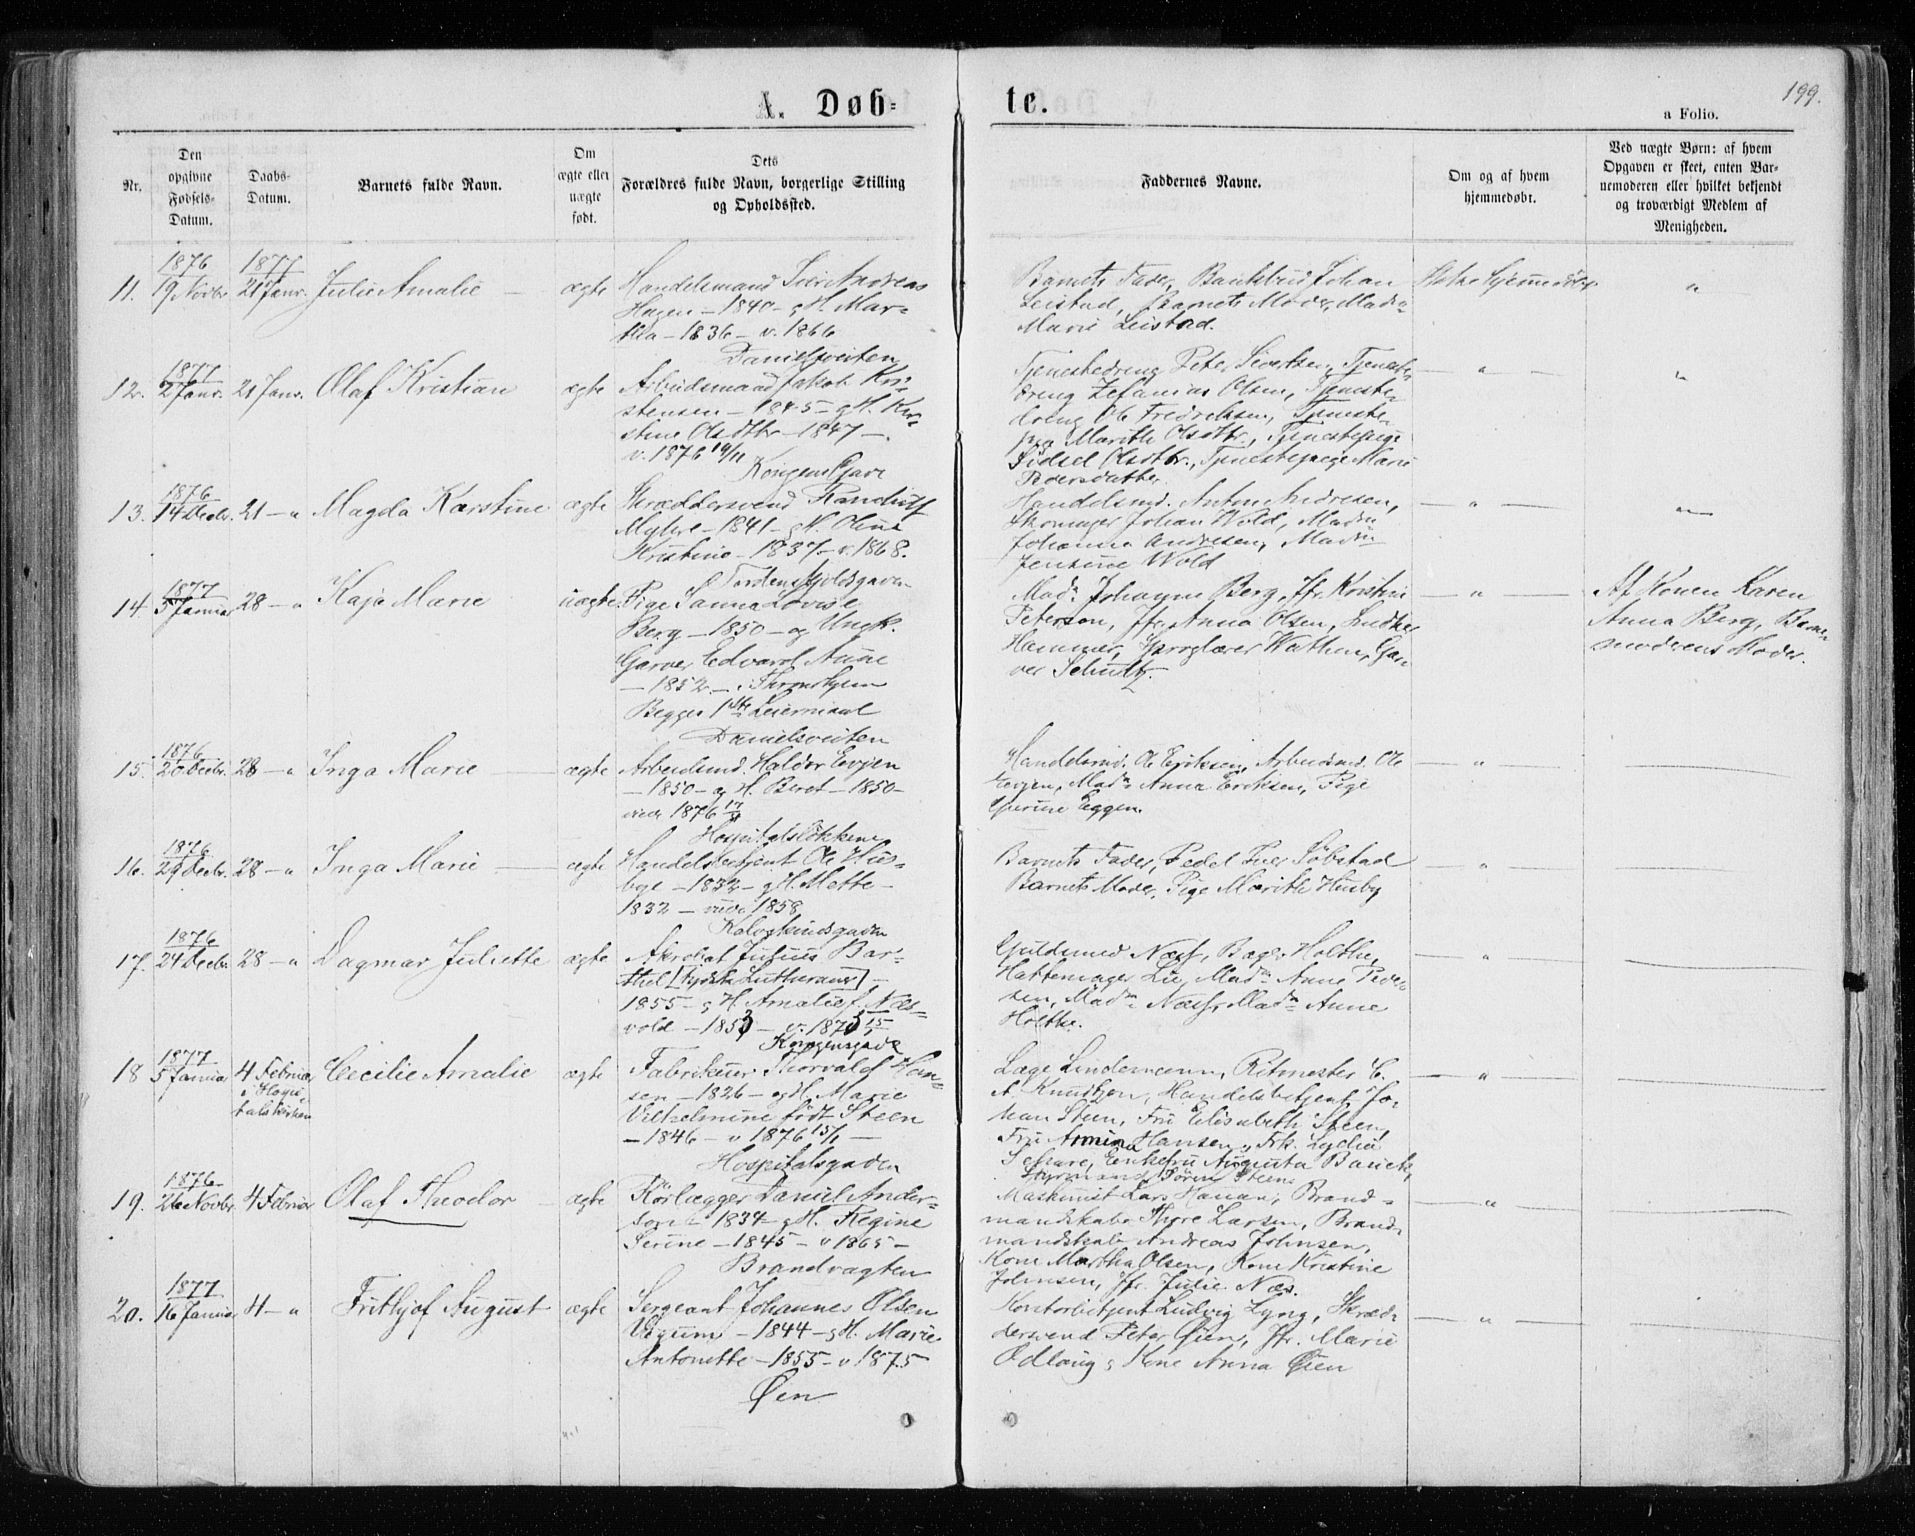 A. Døb-
te.
199.
a Folio.
Nr.
Den
opgivne
Fødsels-
Datum.
Daabs-
Datum.
Barnets fulde Navn.
Om
ægte eller
uægte
født.
Dets
Forældres fulde Navn, borgerlige Stilling
og Opholdssted.
Faddernes Navne.
Om og af hvem
hjemmedøbt.
Ved uægte Børn: af hvem
Opgaven er skeet, enten Bar-
nemoderen eller hvilket bekjendt
og troværdigt Medlem af
Menigheden.
11.
1876
19 Novbr
1877
21 Janr.
Julie Amalie
ægte
Handelsmand Andreas
Hagen - 1840 - g H. Mar-
tha - 1836 - v. 1866
Danielsveiten
Barnets Fader, Bankbud Johan
Leistad, Barnets Moder, Madm
Marie Leistad.
Ikke hjemmedøbt
"
12.
1877
2 Janr.
21 Janr.
Olaf Kristian
ægte
Arbeidsmand Jakob Kri-
stensen - 1845 - g H. Kir-
stine Olsdtr - 1847 -
v. 1876 19/11
Kongens Gade
Tjenestedreng Peter Sivertsen, Tjeneste-
dreng Zefanias Olsen, Tjeneste-
dreng Ole Fredriksen, Tjeneste-
pige Marith Olsdtr., Tjenestepige
Sidsel Olsdtr., Tjenestepige Marie
Pedersdatter.
- " -
"
13.
1876
14 Decbr.
21 - "
Magda Karstine
ægte
Skræddersvend Randulf
Myhre - 1841 - g H. Oline
Kristine - 1837 - v. 1868.
Tordenskjoldsgaden
Handelsmd. Anton Andresen,
Skomager Johan Wold, Madm
Johanna Andresen, Madm
Jensine Wold
- " -
14.
1877
5 Januar
28 - "
Kaja Marie
uægte
Pige Sanna Lovise
Berg - 1850 - og Ungk.
Garver Edvard Aune
- 1852 - , Throndhjem
Begges 1ste Leiermaal
Danielsveiten
Madm Johanne Berg, Jfr. Kristine
Peterson, Jfr. Anna Olsen, Ludvig
Hammer, Sproglærer Wathen, Gar-
ver Schultz.
- " -
Af Konen Karen
Anna Berg, Barne-
moderens Moder.
15.
1876
20 Decbr.
28 - "
Inga Marie
ægte
Arbeidsmd. Haldor Evjen
- 1850 - og H. Beret - 1850 -
viede 1876
Hospitalsløkken
Handelsmd. Ole Eriksen, Arbeidsmd. Ole
Evjen, Madm Anna Eriksen, Pige
Gurine Eggen.
- " -
16.
1876
29 Decbr.
28 - "
Inga Marie
ægte
Handelsbetjent Ole Hus-
bye - 1832 - g H. Mette -
1832 - viede 1858
Kalvskindsgaden
Barnets Fader, Pedel Iver Søbstad
Barnets Moder, Pige Marith Husby
"
17.
1876
24 Decbr.
28 - "
Dagmar Juliette
ægte
Akrobat Julius Bar-
thel [tydsk Lutheraner] -
1855 - g H. Amalie f. Næs-
vold - 1853 - v. 1875
Kongensgade
Guldsmed Næss, Bager Holthe,
Hattemager Lie, Madm Anne Peder-
sen, Madm Næss, Madm Anne
Holthe.
"
18
1877
5 Januar
4 Februar
i Hospi-
talskirken
Cecilie Amalie
ægte
Fabrikeier Thorvald Han-
sen - 1826 - og H. Marie
Vilhelmine født Steen
- 1846 - v 1876 15/1 -
Hospitalsgaden
Læge Lindemann, Ritmester C.
A. Knudtzon, Handelsbetjent Jo-
han Steen, Fru Elisabeth Steen,
Fru Armina Hansen, Frk. Lydia
Schare, Enkefru Augusta Bauck,
Styrmand Søren Steen
"
19.
1876
26 Novbr.
4 Februar
Olaf Theodor
ægte
Rørlægger Daniel Ander-
son - 1834 - g H. Regine
Serine - 1845 - v 1865 -
Brandvagten
Maskinist Lars Hanan, Brand-
mandskabs Thore Larsen, Brand-
mandskab Andreas Johnsen,
Kone Martha Olsen, Kone Kristine
Johnsen, Jfr. Julie Næs.
"
20.
1877
16 Januar
4 - "
Frithjof August
ægte
Sergeant Johannes Olsen
Vigum - 1844 - g H. Marie
Antonette - 1855 - v 1875
Øen
Kontorbetjent Ludvig Lyng, Skræd-
dersvend Peter Øien, Jfr. Marie
Odlaug, Kone Anna Øien
- " -